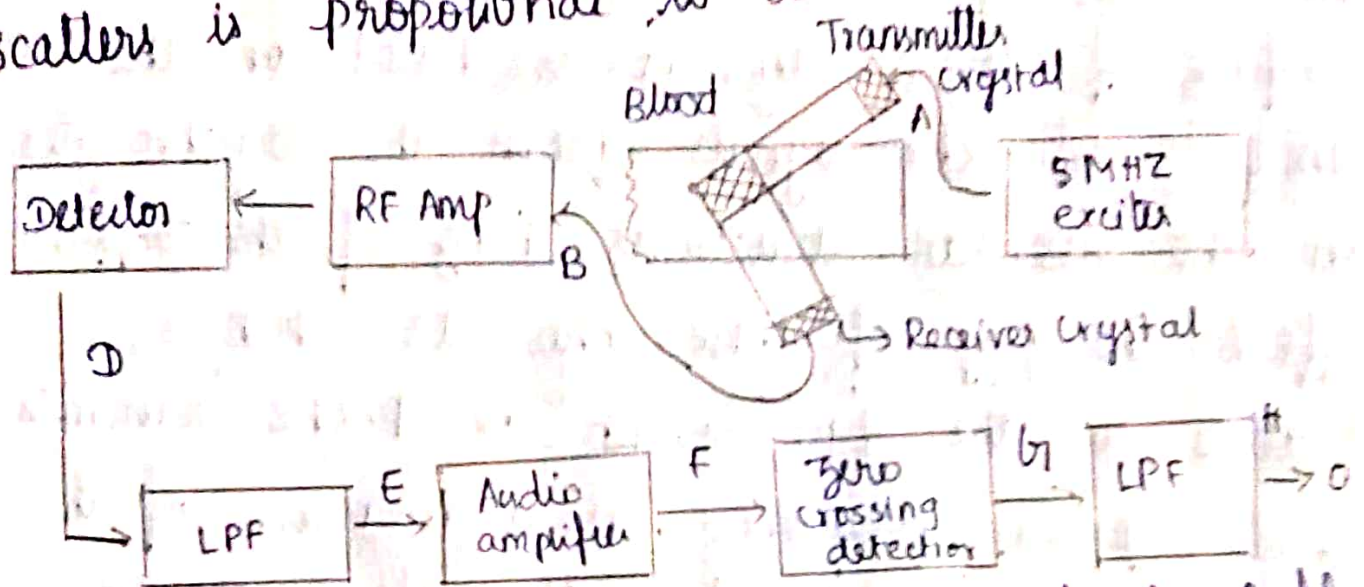 scatters is proportional
Transmitter
crystal.
Blood
A
5 MHZ
exciter
Detector
RF Amp.
B
Receiver Crystal
D
E
F
G
H
LPF
Audio
amplifier
Zero
crossing
detection
LPF
O